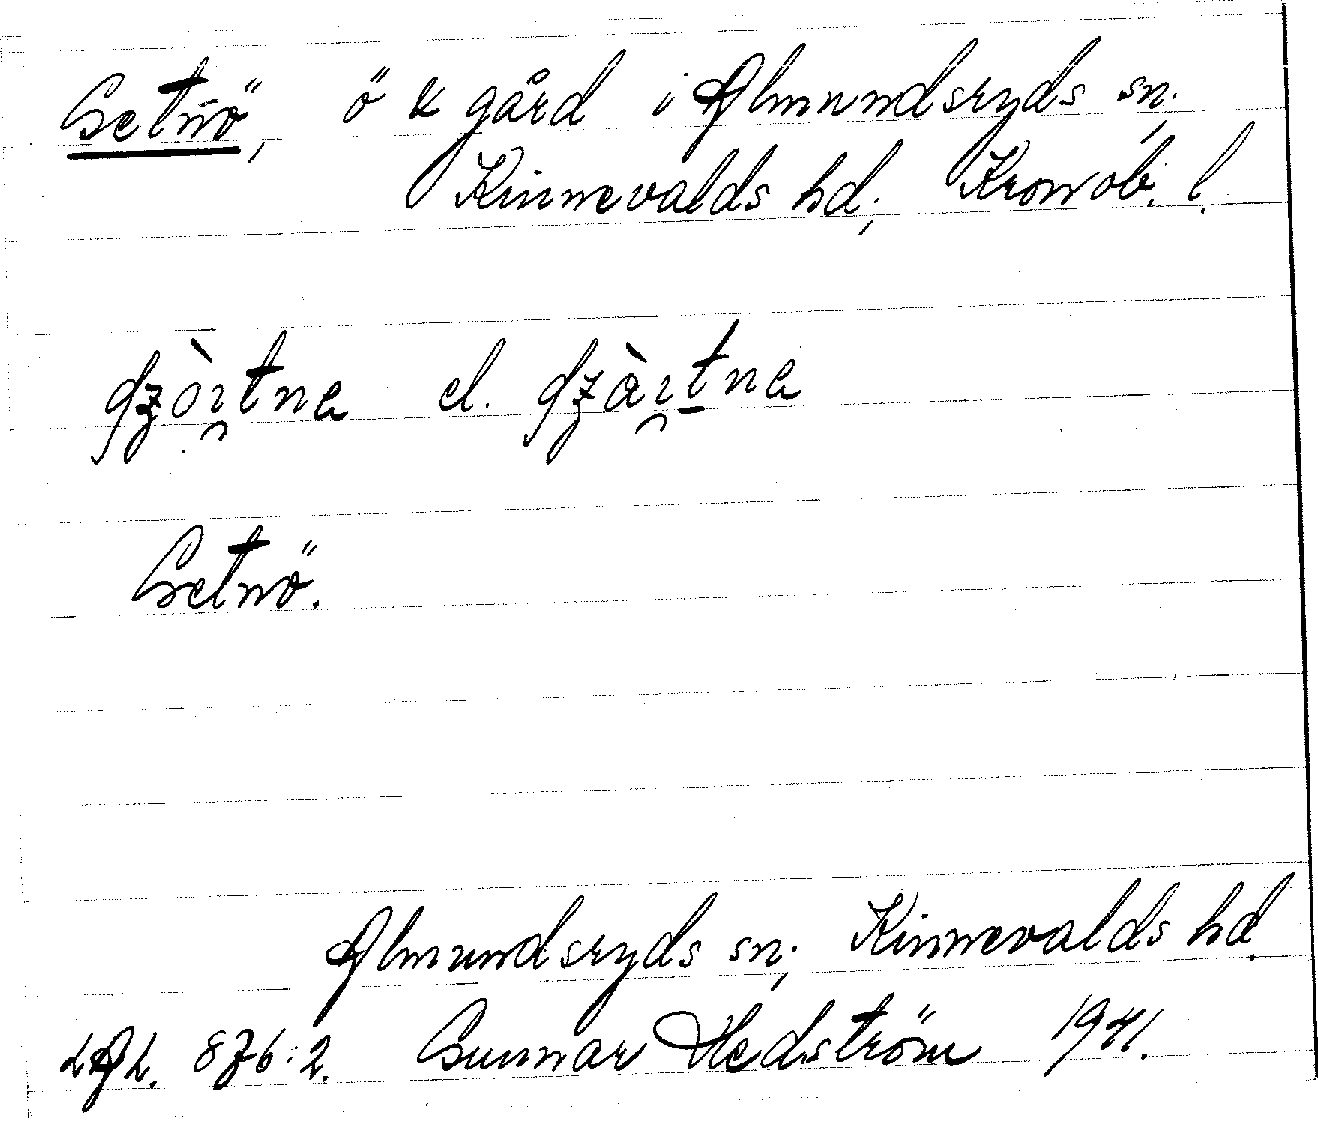 Getnö, ö & gård i Almundsryds sn.
Kinnevalds hd, Kronob. l.
el.
Getnö.
Almundsryds sn, Kinnevalds hd.
LAL. 876:2. Gunnar Hedström 1941.